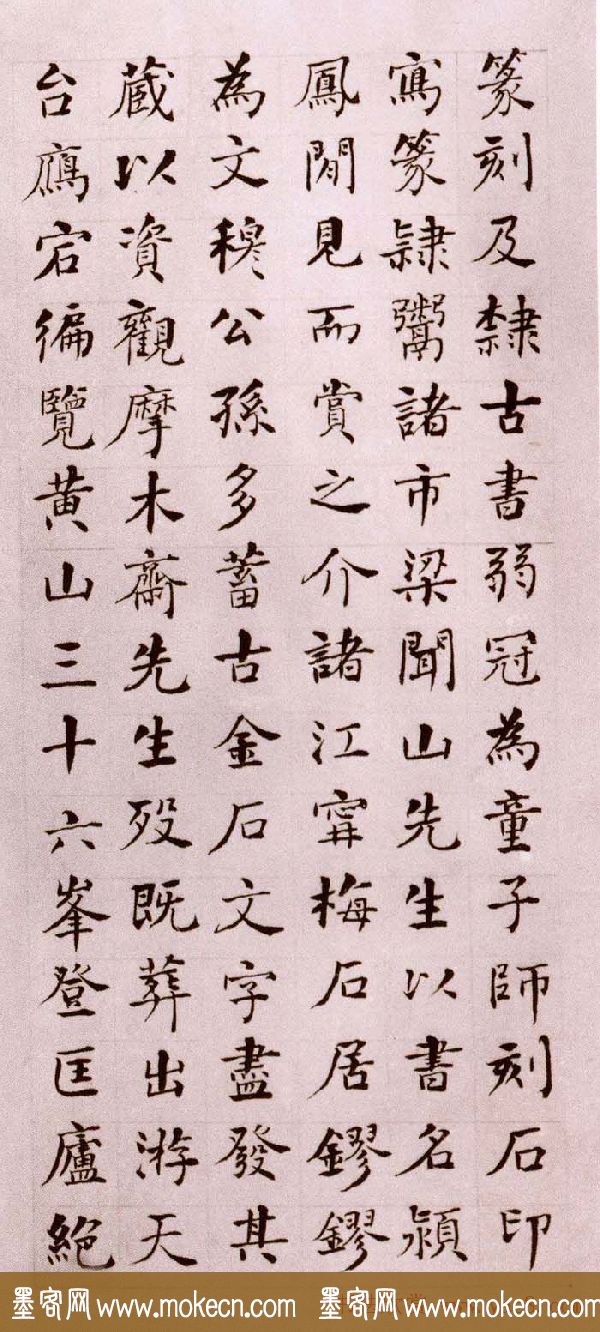 篆刻及隸古書弱冠為童子師刻石印
寫篆隸鬻諸市梁聞山先生以書名潁
鳳閒見而賞之介諸江甯梅石居鏐鏐
為文穆公孫多蓄古金石文字盡發其
蔵以資觀摩木齋先生歿既葬出游天
台鴈宕徧覽黄山三十六峯登匡廬絕
墨客网 www.mokecn.com 墨客网 www.mokecn.com